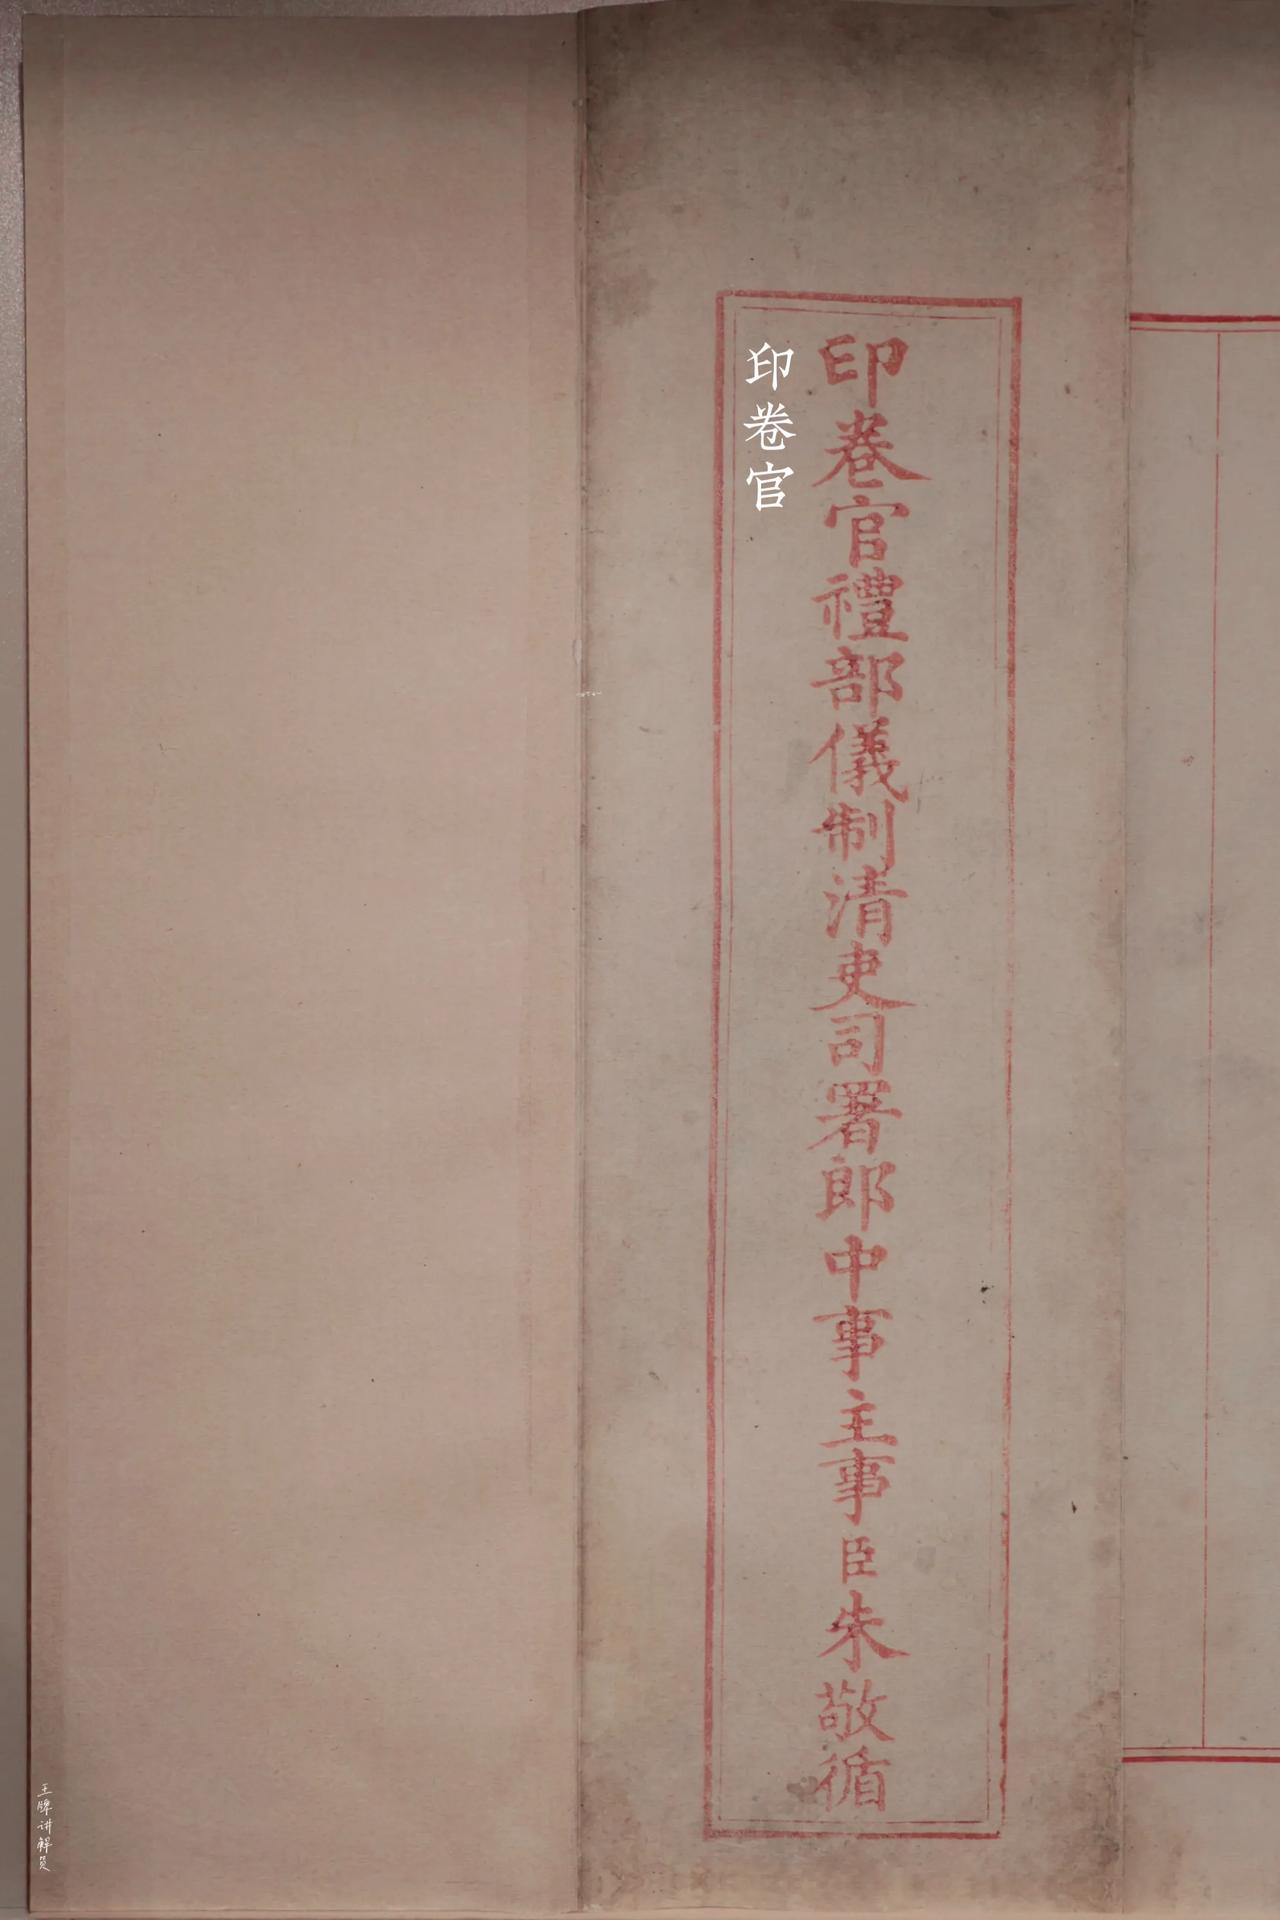 印卷官禮部儀制清吏司署郎中事主事臣朱敬循
印卷官
王牌讲解员